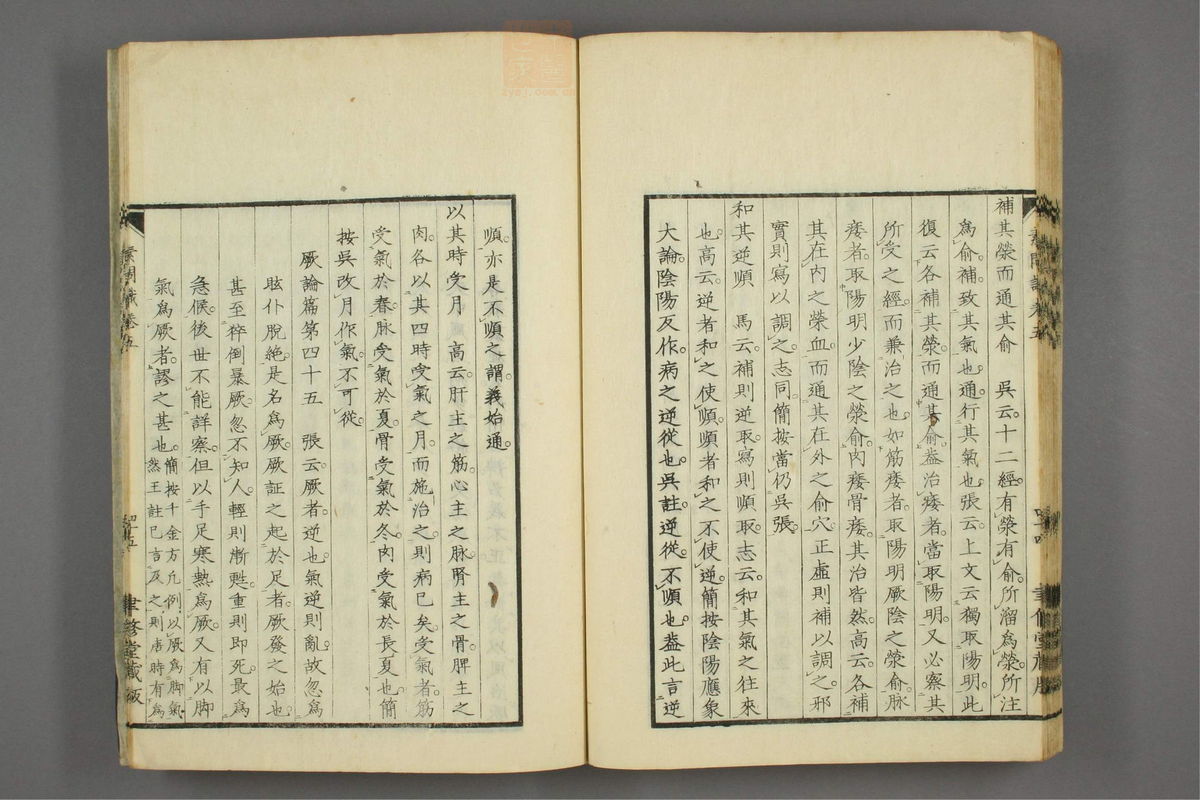 補其榮而通其俞　吳云。十二經有滎有俞。所溜為滎。所注
為俞。補致其氣也。通行其氣也。張云。上文云獨取陽明。此
復云各補其滎。而通其俞。蓋治痿者。當取陽明。又必察其
所受之經。而兼治之也。如筋痿者。取陽明厥陰之滎俞。脉
痿者。取陽明少陰之滎俞。肉痿骨痿。其治皆然。高云。各補
其在內之榮血。而通其在外之俞穴。正虛則補以調之。邪
實則寫以調之。志同。簡按當仍吳張。
和其逆順　馬云。補則逆取。寫則順取。志云。和其氣之往來
也。高云。逆者和之使順。順者和之不使逆。簡按陰陽應象
大論。陰陽反作。病之逆從也。吳註。逆從。不順也。蓋此言逆
順。亦是不順之謂。義始通。
以其時受月　高云。肝主之筋。心主之脉。腎主之骨。脾主之
肉。各以其四時受氣之月。而施治之。則病已矣。受氣者。筋
受氣於春。脉受氣於夏。骨受氣於冬。肉受氣於長夏也。簡
按吳改月作氣。不可從。
厥論篇第四十五　張云。厥者逆也。氣逆則亂。故忽為
眩仆脫絕。是名為厥。厥証之起於足者。厥發之始也。
甚至猝倒暴厥。忽不知人。輕則漸甦。重則即死。最為
急候。後世不能詳察。但以手足寒熱為厥。又有以脚
氣為厥者。謬之甚也。簡按千金方凡例。以厥為脚氣
然王註已言及之。則唐時有為
素問識卷五
四十五
聿修堂藏版
四十四
聿修堂藏版
zysj.com.cn